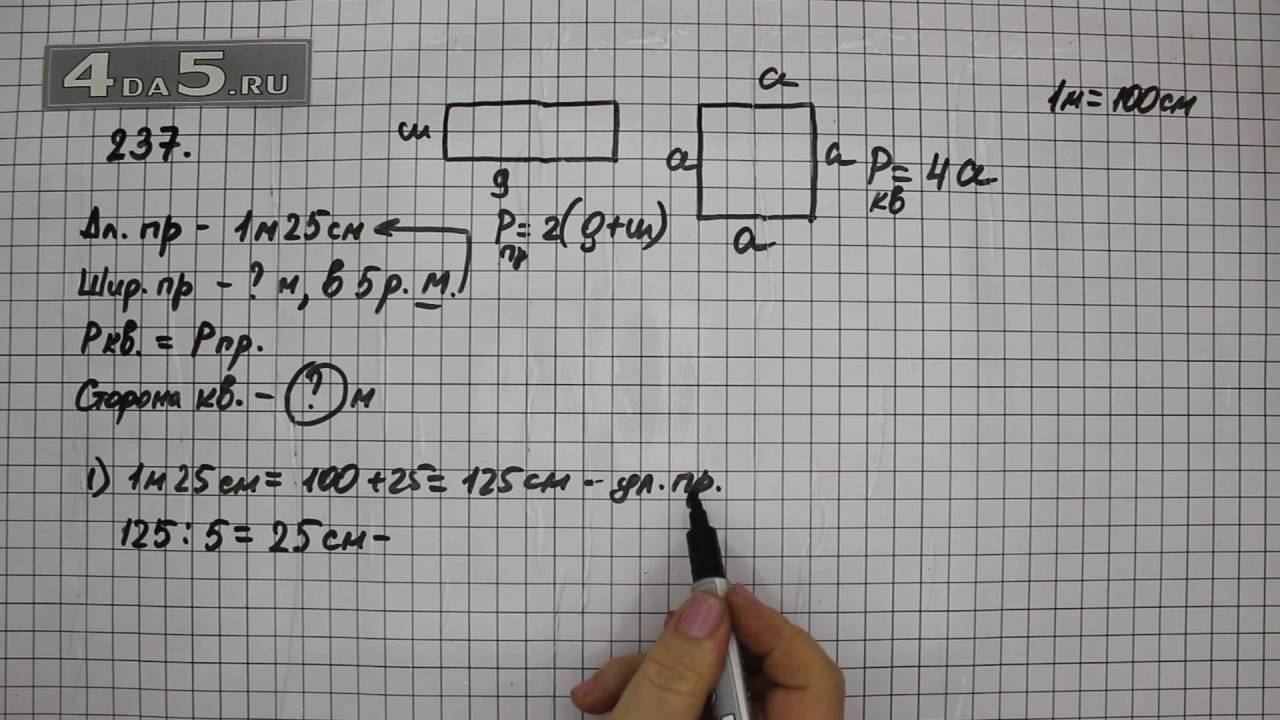 4DA5.RU
237.
1м=100см
ш
д
P пр = 2(д+ш)
a
a
a
a
P кв = 4a
Дл. пр - 1м25см
Шир. пр - ? м, в 5 р. м.
Pкв. = Pпр.
Сторона кв. - ? м
1) 1м25см = 100+25= 125см - дл. пр.
125 : 5 = 25см -